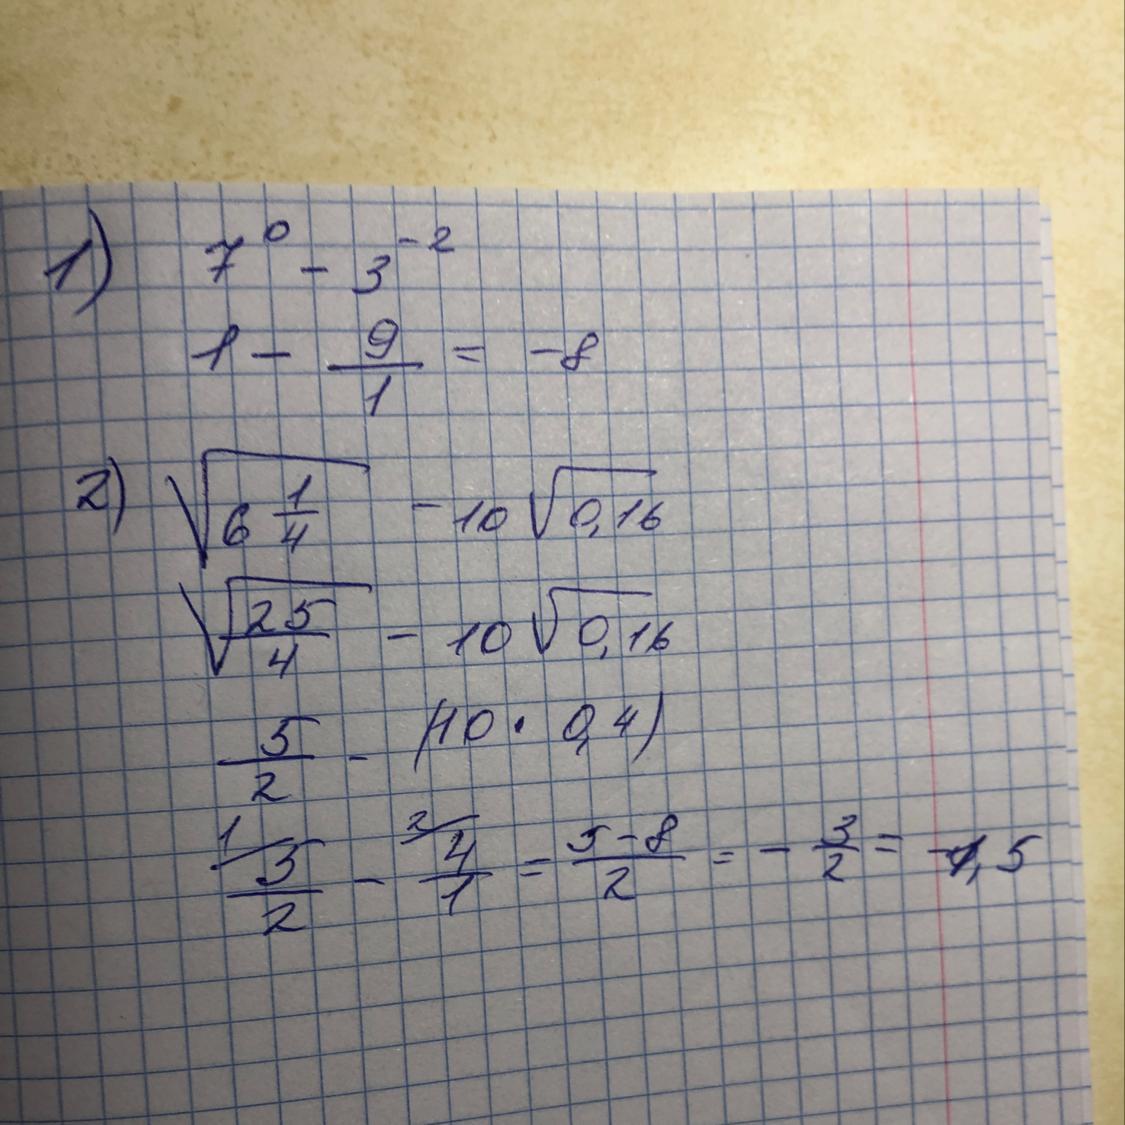 1) 7⁰ - 3⁻²
1 - 9/1 = -8
2) √(6 1/4) - 10√0,16
√(25/4) - 10√0,16
5/2 - (10 · 0,4)
¹⁄ 5/2 - ²⁄ 4/1 = (5-8)/2 = - 3/2 = -1,5